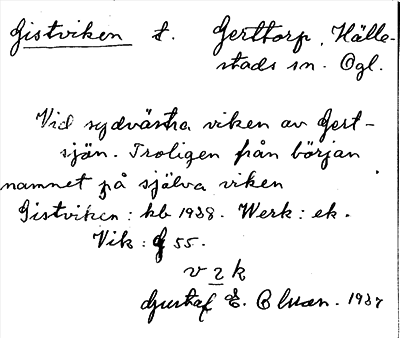 Gistviken t. Gerttorp, Hälle-
stads sn. Ögl.
Vid sydvästra viken av Gert-
sjön. Troligen från början
namnet på själva viken
Gistviken: kb 1938. Werk: ek.
Vik: G 55.
v 2 k
Gustaf E. 1937